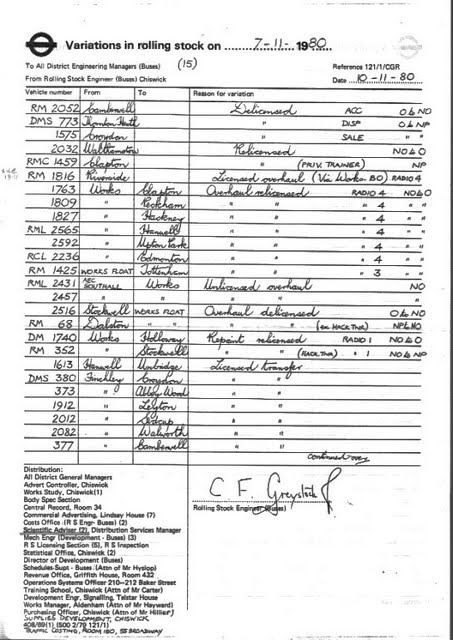 Variations in rolling stock on 7-11- 1980
To All District Engineering Managers (Buses) (15) Reference 121/1/CGR
From Rolling Stock Engineer (Buses) Chiswick Date 10-11-80
Vehicle number From To Reason for variation
RM 2052 Camberwell Delicensed ACC O to NO
DMS 773 Thornton Heath " DISP O to NP
1575 Croydon " SALE " "
2032 Walthamstow Relicensed NO to O
RMC 1459 Clapton " (PRIV. TRAINER) NP
RM 1816 Riverside Licensed overhaul (Via Works BO) RADIO 4
1763 Works Clapton Overhaul relicensed RADIO 4 NO to O
1809 " Peckham " " " 4 "
1827 " Hackney " " " 4 "
RML 2565 " Hanwell " " " 4 "
2592 " Upton Park " " " 4 "
RCL 2236 " Edmonton " " " 4 "
RM 1425 WORKS FLOAT Tottenham " " " 3 "
RML 2431 AEC SOUTHALL Works Unlicensed overhaul NO
2457 " " " " "
2516 Stockwell WORKS FLOAT Overhaul delicensed O to NO
RM 68 Dalston " " " " (ex HACK TNR) NP to NO
DM 1740 Works Holloway Repaint relicensed RADIO 1 NO to O
RM 352 " Stockwell " " (HACK TNR) " 1 NO to NP
1613 Hanwell Uxbridge Licensed transfer
DMS 380 Finchley Croydon " "
373 " Abbey Wood " "
1912 " Leyton " "
2012 " Sidcup " "
2082 " Walworth " "
377 " Camberwell " "
continued over
Distribution:
All District General Managers
Advert Controller, Chiswick
Works Study, Chiswick(1)
Body Spec Section
Central Record, Room 34
Commercial Advertising, Lindsay House (7)
Costs Office (R S Engr- Buses) (2)
Scientific Adviser (2), Distribution Services Manager
Mech Engr (Development - Buses) (3)
R S Licensing Section (5), R S Inspection
Statistical Office, Chiswick (2)
Director of Development (Buses)
Schedules Supt - Buses (Attn of Mr Hyslop)
Revenue Office, Griffith House, Room 432
Operations Systems Officer 210-212 Baker Street
Training School, Chiswick (Attn of Mr Carter)
Development Engr, Signalling, Telstar House
Works Manager, Aldenham (Attn of Mr Hayward)
Purchasing Officer, Chiswick (Attn of Mr Hillier)
SUPPLIES DEVELOPMENT, CHISWICK
408/69(1) (500 2/79 121/1)
TRAFFIC COSTING, ROOM 180, 55 BROADWAY
C F Greystock
Rolling Stock Engineer (Buses)